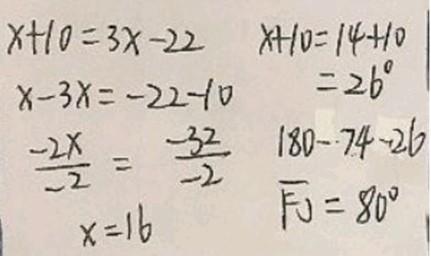 x+10=3x-22
x-3x=-22-10
-2x/-2 = -32/-2
x=16
x+10=14+10
=26°
180-74-26
F̅J̅=80°